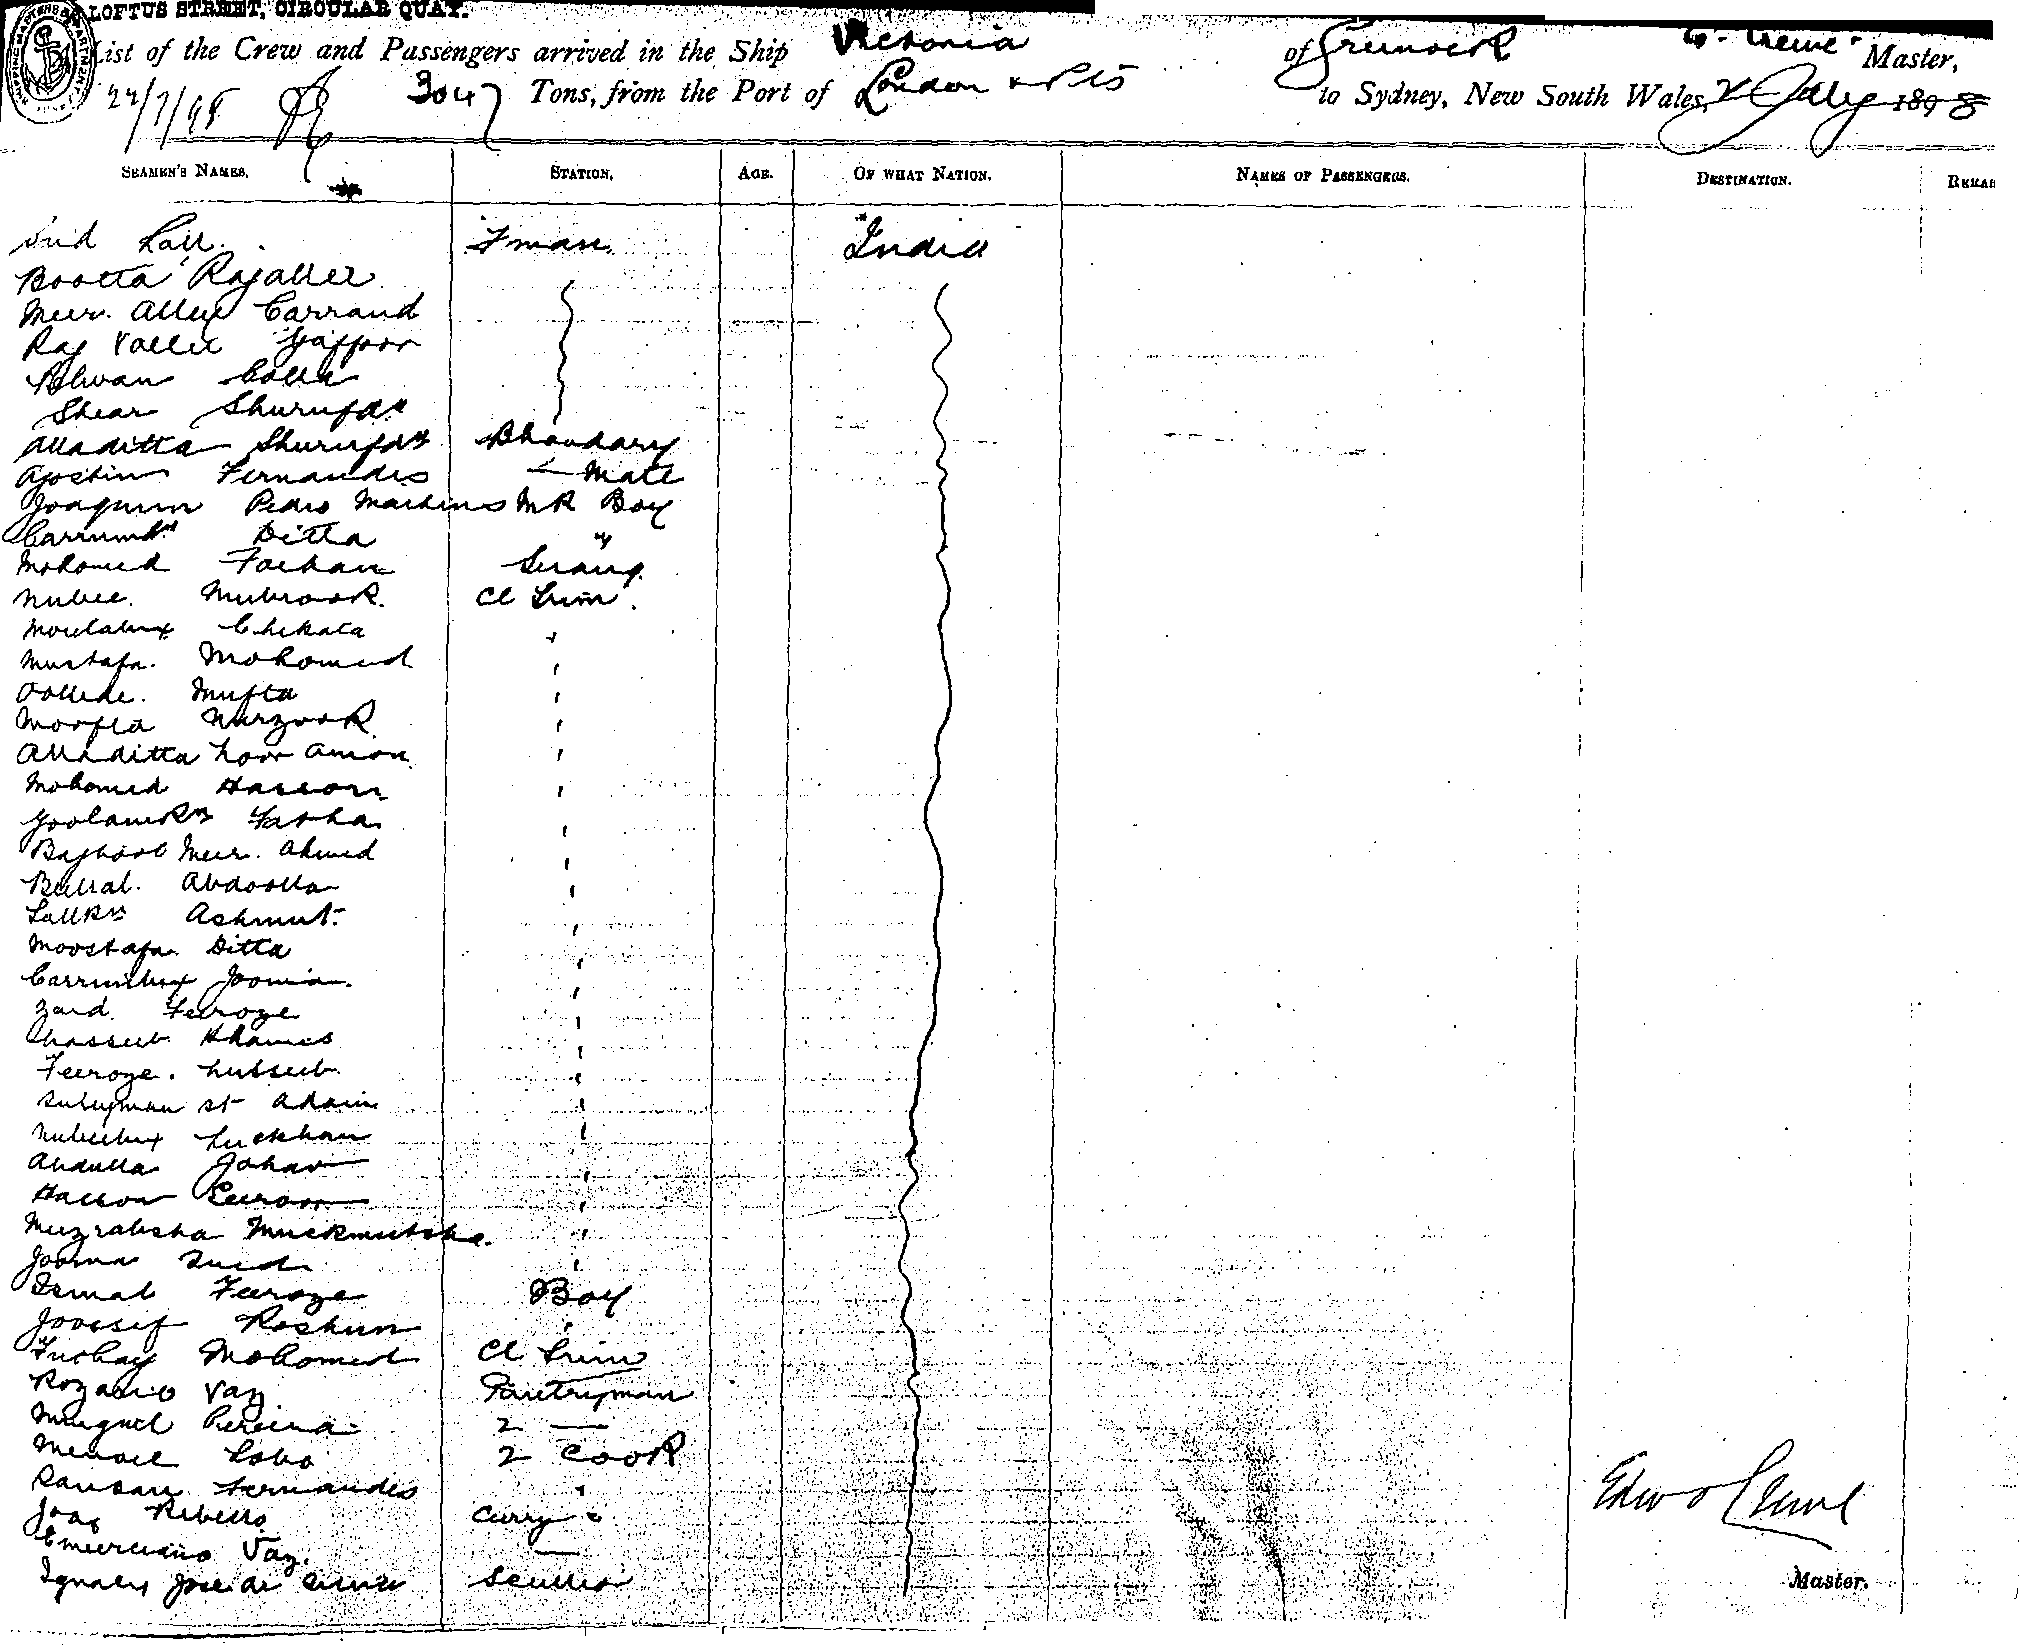 LOFTUS STREET, CIRCULAR QUAY.
List of the Crew and Passengers arrived in the Ship Victoria of Greenock E. Crewe Master,
22/7/98 3047 Tons, from the Port of London & Pts to Sydney, New South Wales, July 1898
SEAMEN'S NAMES. STATION. AGE. OF WHAT NATION. NAMES OF PASSENGERS. DESTINATION.
Lall Fman India
Bootta Rajallee
Meer Alley Carrand
Raj Vallee Gaffoor
Pelwan Colla
Shear Shurufdn
Alladitta Shurufdn Bhandary
Agostin Fernandes — Mate
Joaquim Pedro Martins MR Boy
Carrumdn Ditta "
Mohomed Farhan Serang
Nubee Mubrook Cl Trim
Moulabux Chekata "
Mustafa Mohomed "
Mufta "
Moofta Murzook "
Alladitta Noor Amon "
Mohomed Hasson "
Goolamkdr "
Meer Ahmed "
Bellal Abdoolla "
Ashmut "
Moostafa Ditta "
Carrimbux Jooma "
Zaid Feeroze "
Khamis "
Feeroze "
Suleyman st Adam "
Nubeebux Luckhan "
Abdulla Johar "
Hasson "
Muzrabsha "
Jooma Sued "
Ismal Feeroze Boy
Joossif Roshun "
Mohomed Cl Trim
Rozario Vaz Pantryman
Minguel Pereira 2 —
Lobo 2 Cook
Fernandes "
Joao Rebello Curry "
Emerciano Vaz —
Jose de Scullion
Edwd Crewe
Master.